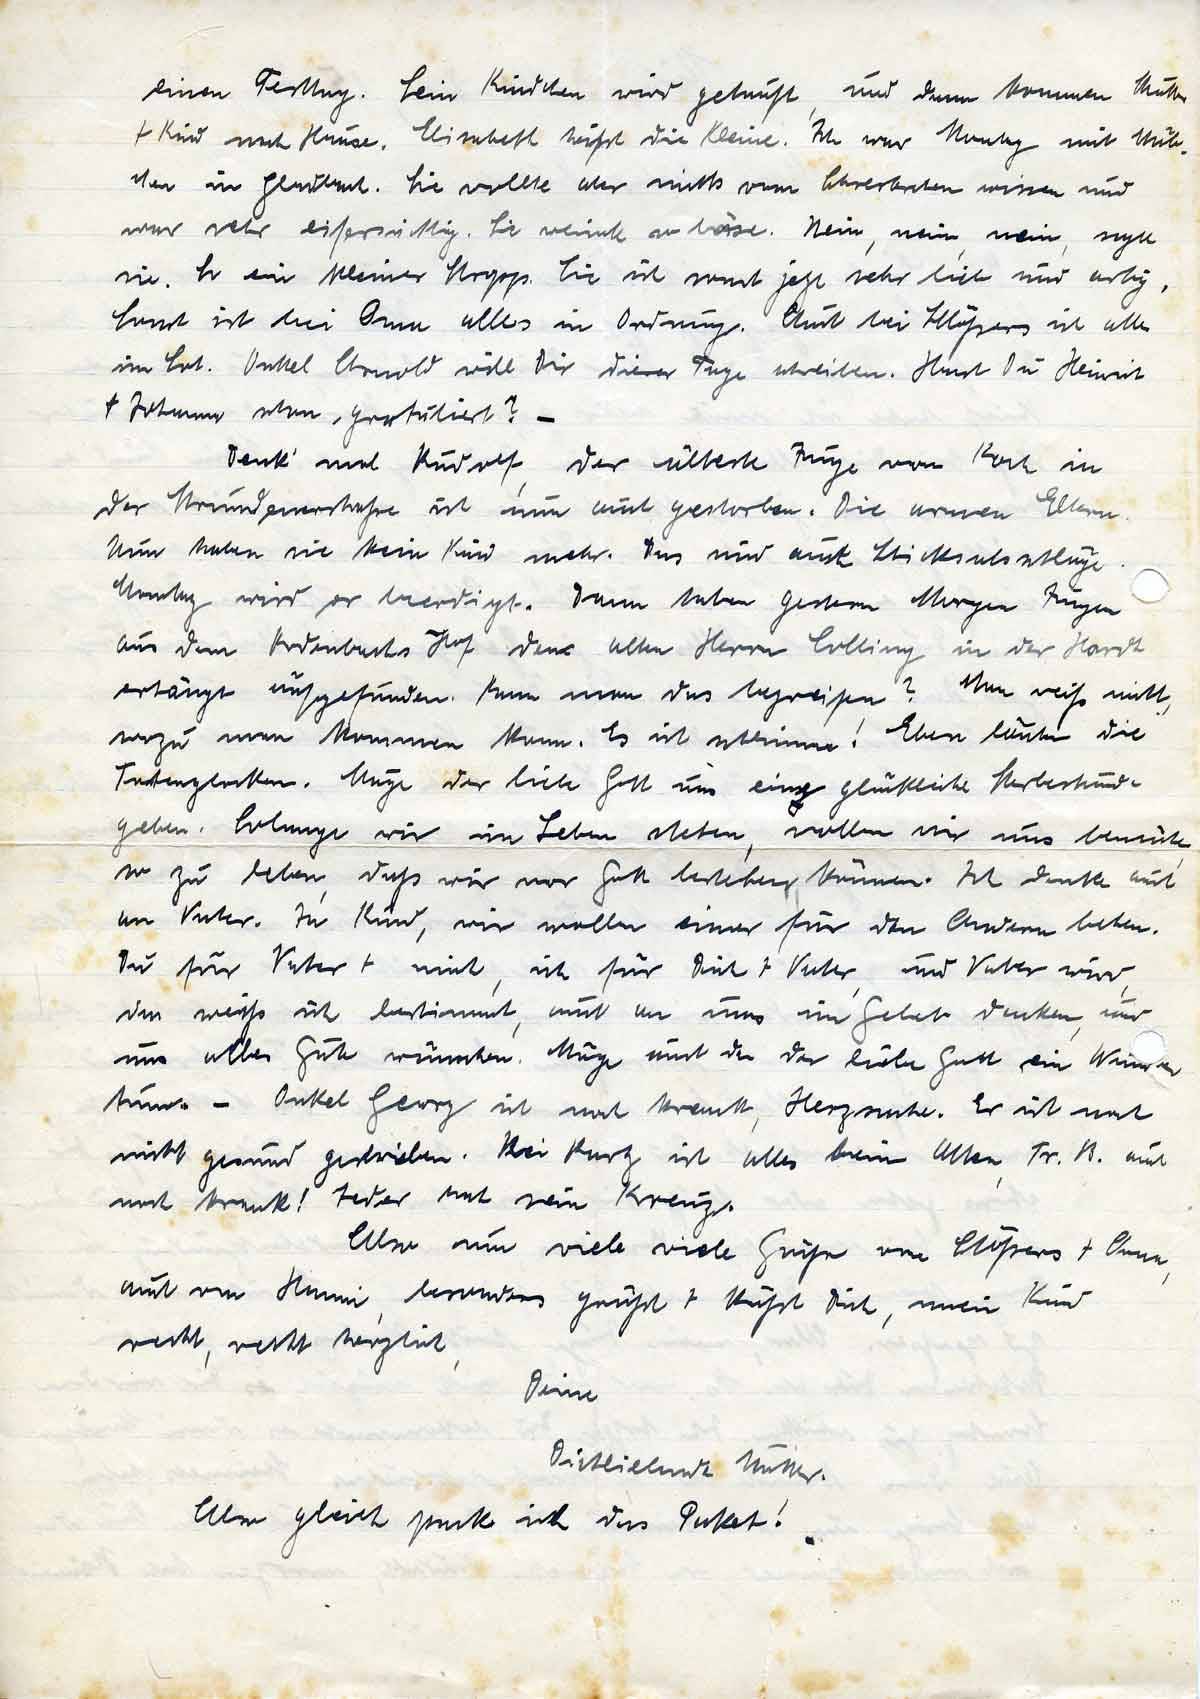 einen Festtag. Sein Kindchen wird getauft, und dann kommen Mutter
+ Kind nach Hause. Elisabeth heißt die Kleine. Ich war Montag mit
in Gladbach. Sie wollte aber nichts vom wissen und
war sehr eifersüchtig. Sie weinte so böse. Nein, nein, nein, sagte
sie. So ein kleiner Stropp. Sie ist sonst jetzt sehr lieb und artig.
Sonst ist bei Oma alles in Ordnung. Auch bei Stößers ist alles
im Lot. Onkel Arnold will Dir dieser Tage schreiben. Hast Du Heinrich
+ Johanna schon gratuliert? –
Denk' mal Rudolf, der älteste Junge von Koch in
der ist nun auch gestorben. Die armen Eltern.
Nun haben sie kein Kind mehr. Das sind auch Schicksalsschläge.
Montag wird er beerdigt. Dann haben gestern Morgen Jungen
aus dem Hof den alten Herrn Colling in der Hardt
erhängt aufgefunden. Kann man das begreifen? Man weiß nicht,
wozu man kommen kann. Es ist schlimm! Eben läuten die
Totenglocken. Möge der liebe Gott uns eine glückliche Sterbestunde
geben. Solange wir im Leben stehen, wollen wir uns bemühen,
so zu leben, daß wir vor Gott bestehen können. Ich denke auch
an Vater. Ja Kind, wir wollen einer für den Andern beten.
Du für Vater + mich, ich für Dich + Vater, und Vater wird,
das weiß ich bestimmt, auch an uns im Gebet denken, und
uns alles Gute wünschen. Möge auch da der liebe Gott ein Wunder
tun. – Onkel Georg ist noch krank, Herzsache. Er ist noch
nicht gesund geschrieben. Bei Kurtz ist alles beim Alten, Fr. K. auch
noch krank! Jeder hat sein Kreuz.
Also nun viele viele Grüße von Stößers + Oma,
auch von Hanni, besonders grüßt + küßt Dich, mein Kind
recht, recht herzlich,
Deine
Dichliebende Mutter.
Also gleich packe ich das Paket!